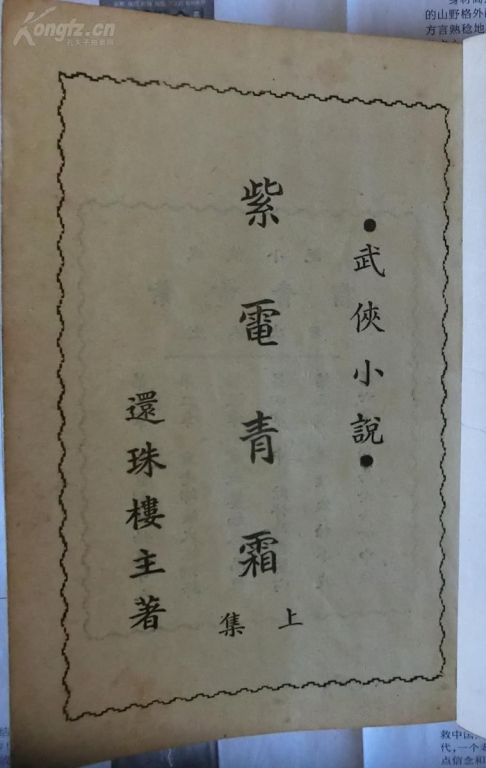 •武俠小說•
紫電青霜
上集
還珠樓主著
Kongfz.cn
的山野格外
方言熟稔地
救中国
代,一个
点信念和